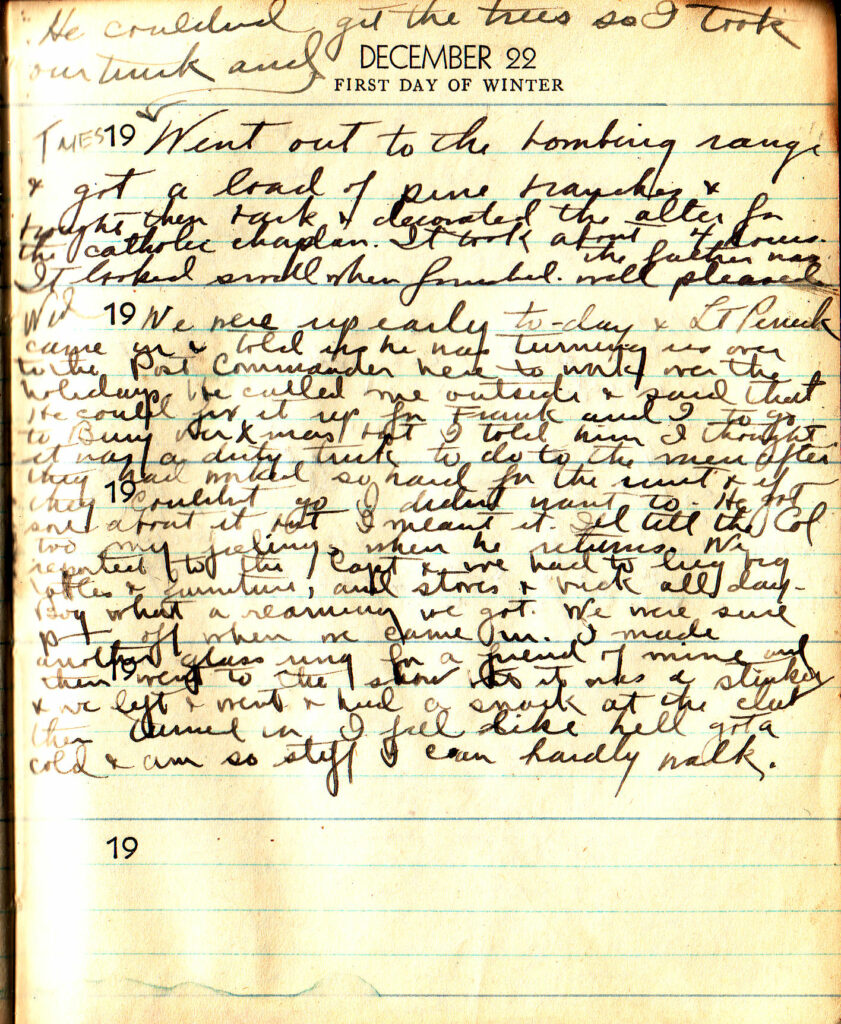 He couldnt get the trees so I took
our truck and
DECEMBER 22
FIRST DAY OF WINTER
TUES 19 Went out to the bombing range
& got a load of pine branches &
brought them back & decorated the alter for
the catholic chaplan. It took about 4 hours.
It looked swell when finished. the father was well pleased
Wed 19 We were up early to-day & LT
came in & told us he was turning us over
to the Post Commander here to work over the
holidays. He called me outside & said that
He could fix it up for Frank and I to go
to over Xmas but I told him I thought
it was a dirty trick to do to the men after
they had worked so hard for the unit & if
19
they couldnt go I didnt want to. He got
sore about it but I meant it. I'll tell the Col
too my feelings when he returns. We
reported to the Capt & we had to lug big
tables & furniture, and stoves & all day.
Boy what a reaming we got. We were sure
p - t off when we came in. I made
another glass ring for a friend of mine and
19
then went to the show but it was a stinker
& we left & went & had a snack at the club
then turned in. I feel like hell gota
cold & am so stiff I can hardly walk.
19